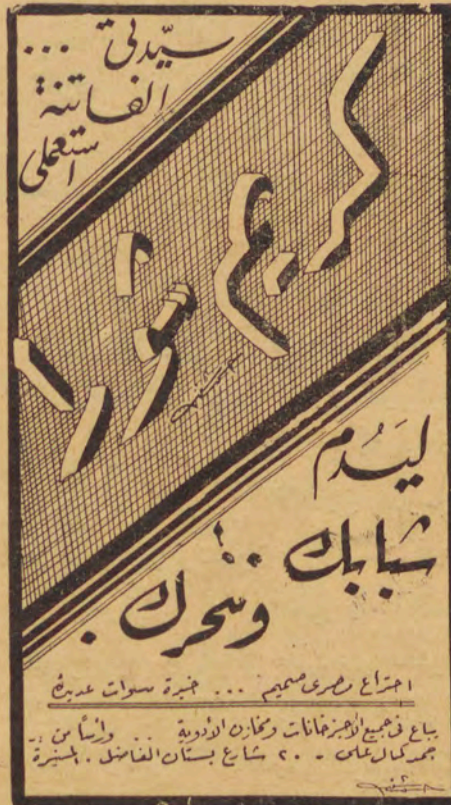 سيّدتى ...
الفاتنة
استعملى
كريم ثورا
ليَدُم
شبابك
وسحرك .
اختراع مصرى صميم ... خبرة سنوات عديدة
يباع فى جميع الأجزخانات ومخازن الأدوية .. ورأساً من :-
محمد كمال على - ٢٠ شارع بستان الفاضل . المنيرة